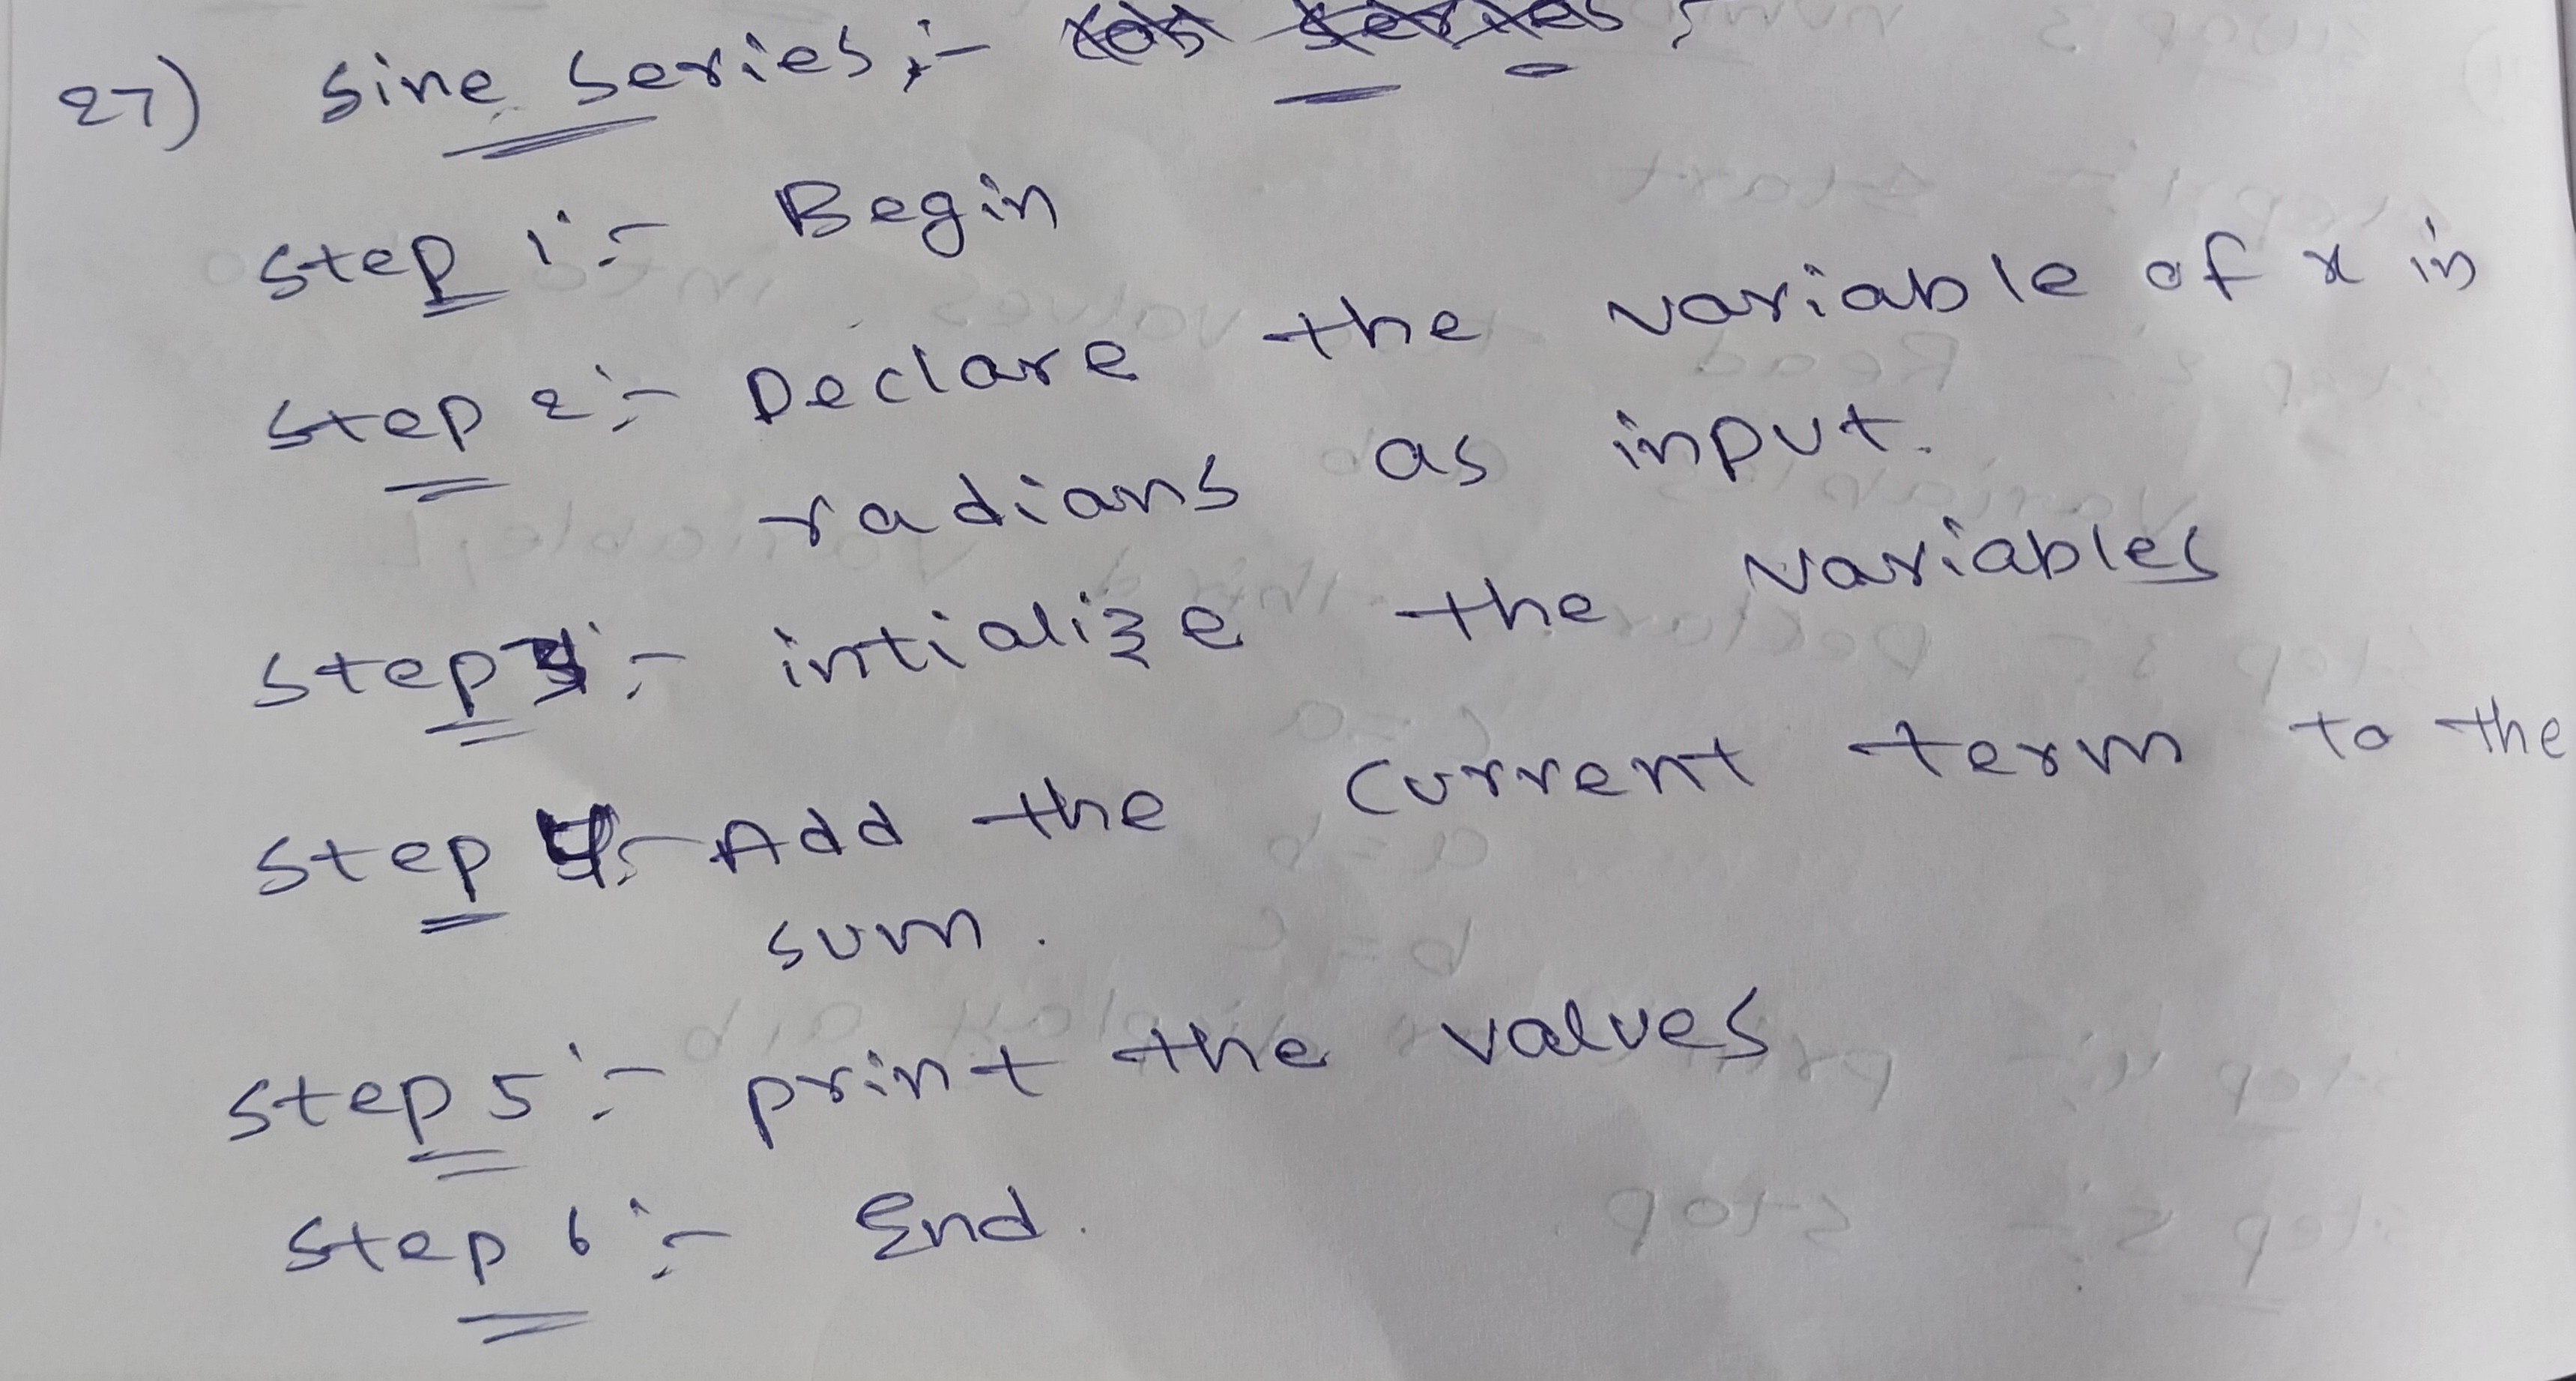 27) sine series :- cos series :-
step 1 :- Begin
step 2 :- Declare the variable of x in
radians as input.
step 3 :- intialize the variables
step 4 :- Add the current term to the
sum.
step 5 :- print the values
step 6 :- End.